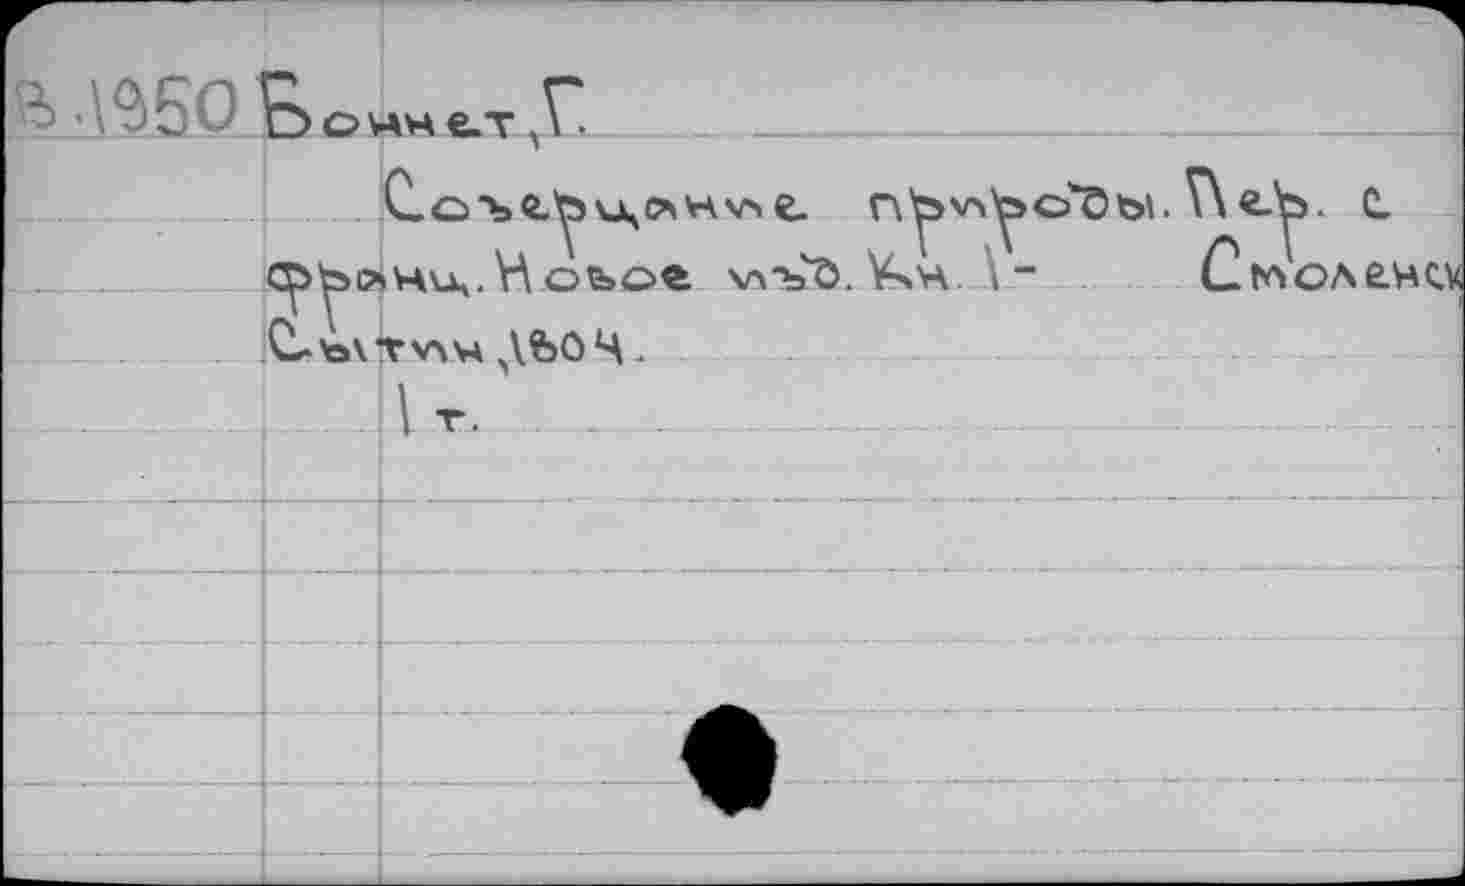 В.1950 Боннет,Г.
Созерцание природы. Пер. с
франц. Новое изд. Кн. 1- Смоленск
Сытин,1804.
1 т.